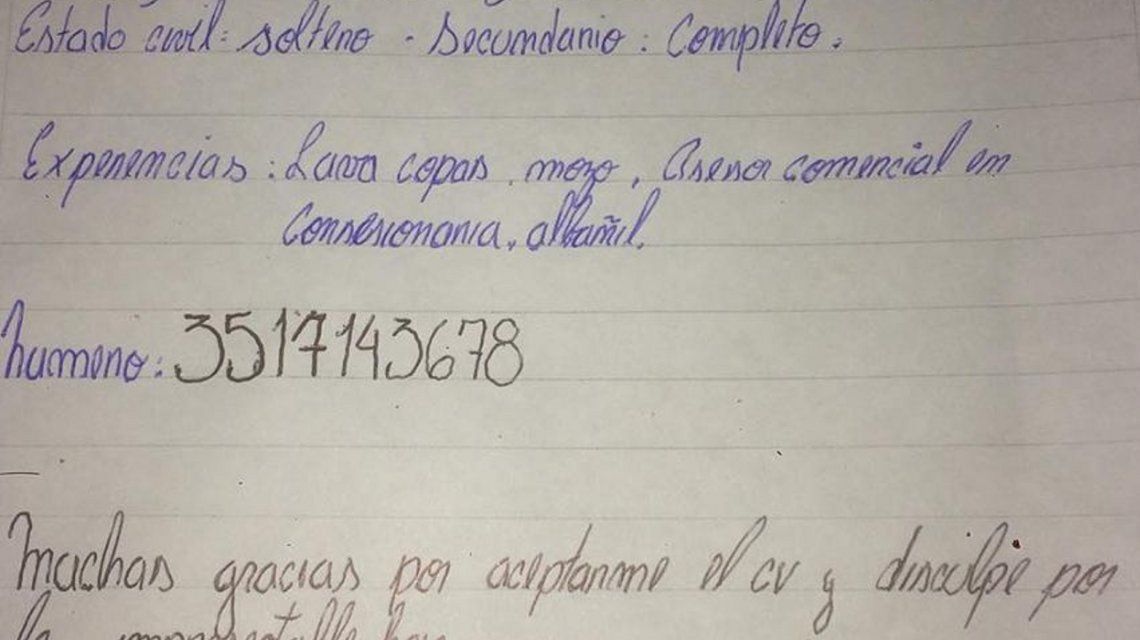 Estado civil: soltero - Secundario: Completo.
Experiencias: Lava copas, mozo, Asesor comercial en
Consesionaria, albañil.
numero: 3517143678
Muchas gracias por aceptarme el cv y disculpe por